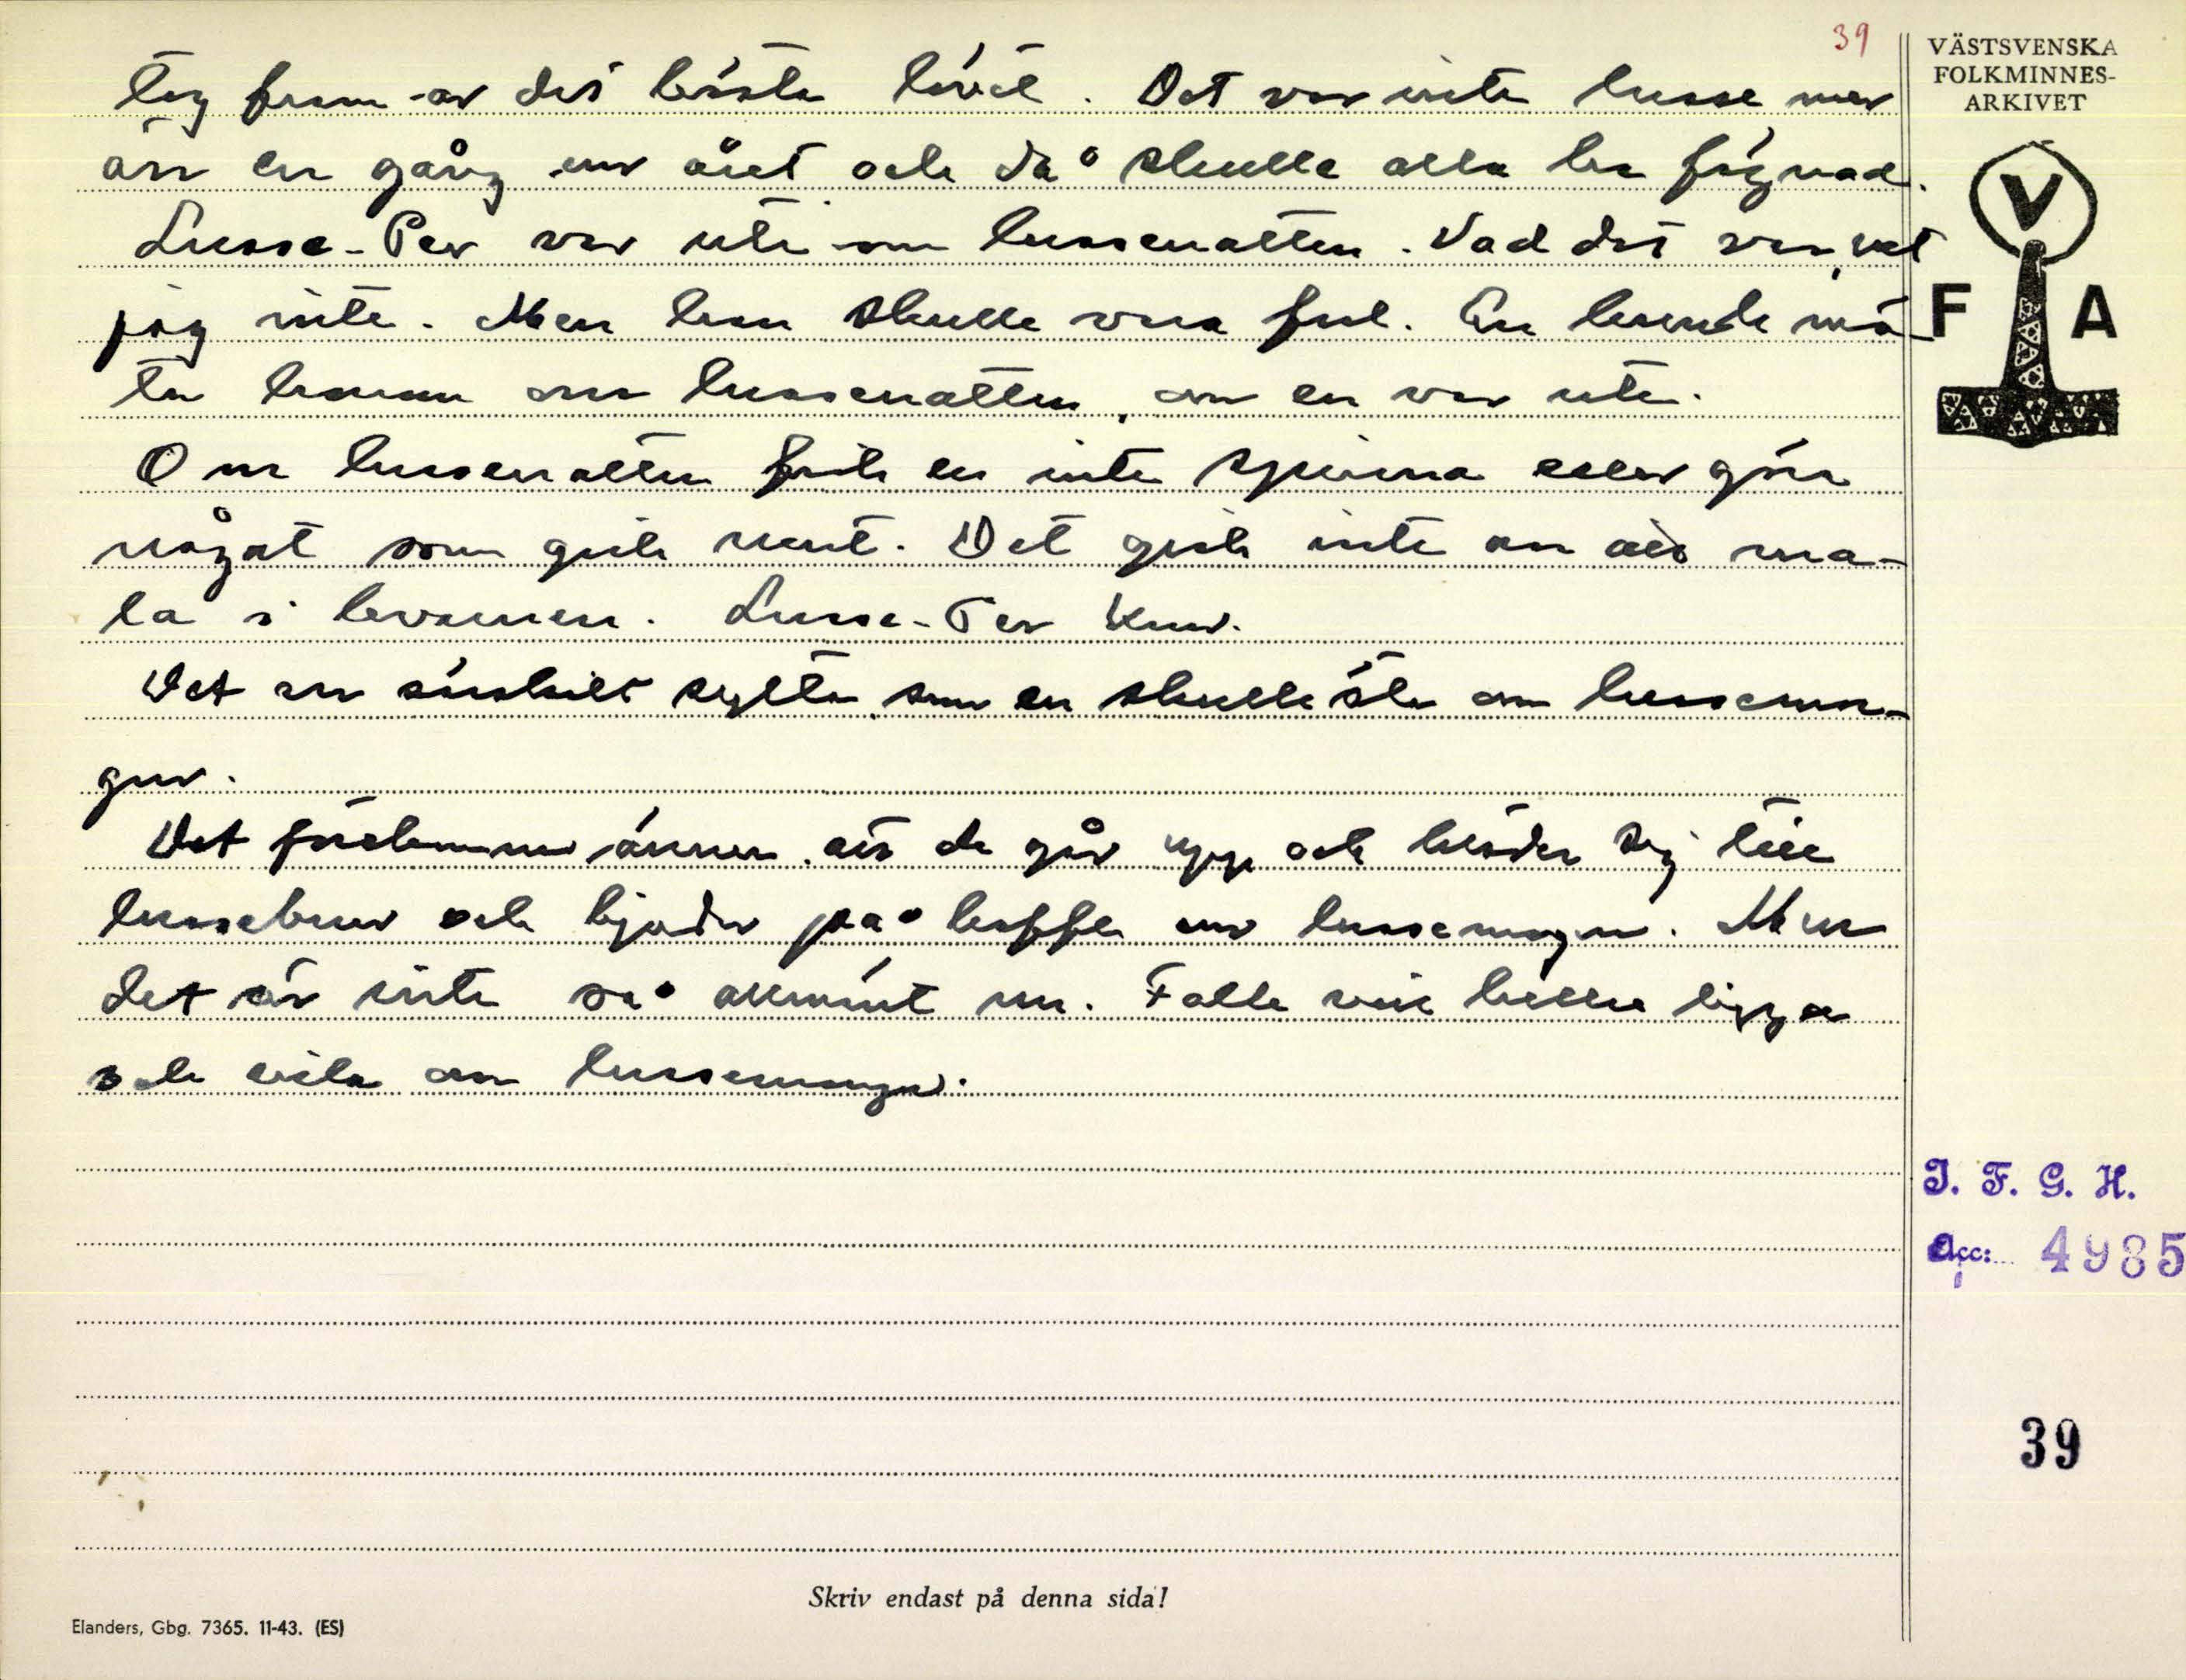 39
VÄSTSVENSKA
FOLKMINNES-
ARKIVET
tog fram av det bästa . Det var inte lusse mer
än en gång om året och då skulle alla ha fägnad.
Lusse-Per var ute om lussenatten. Vad det var, vet
jag inte. Men han skulle vara ful. En kunde mö-
ta honom om lussenatten, om en var ute.
Om lussenatten fick en inte spinna eller göra
något som gick runt. Det gick inte an att ma-
la i kvarnen. Lusse-Per kom.
Det var särskilt sylta, som en skulle äta om lussemor-
gon.
Det förekommer ännu, att de går upp och kläder sig till
lussebrud och bjuder på kaffe om lussemorgon. Men
det är inte så allmänt nu. Folk vill hellre ligga
och vila om lussemorgon.
V
F A
I. F. G. H.
Acc: 4985
39
Skriv endast på denna sida!
Elanders, Gbg. 7365. 11-43. (ES)